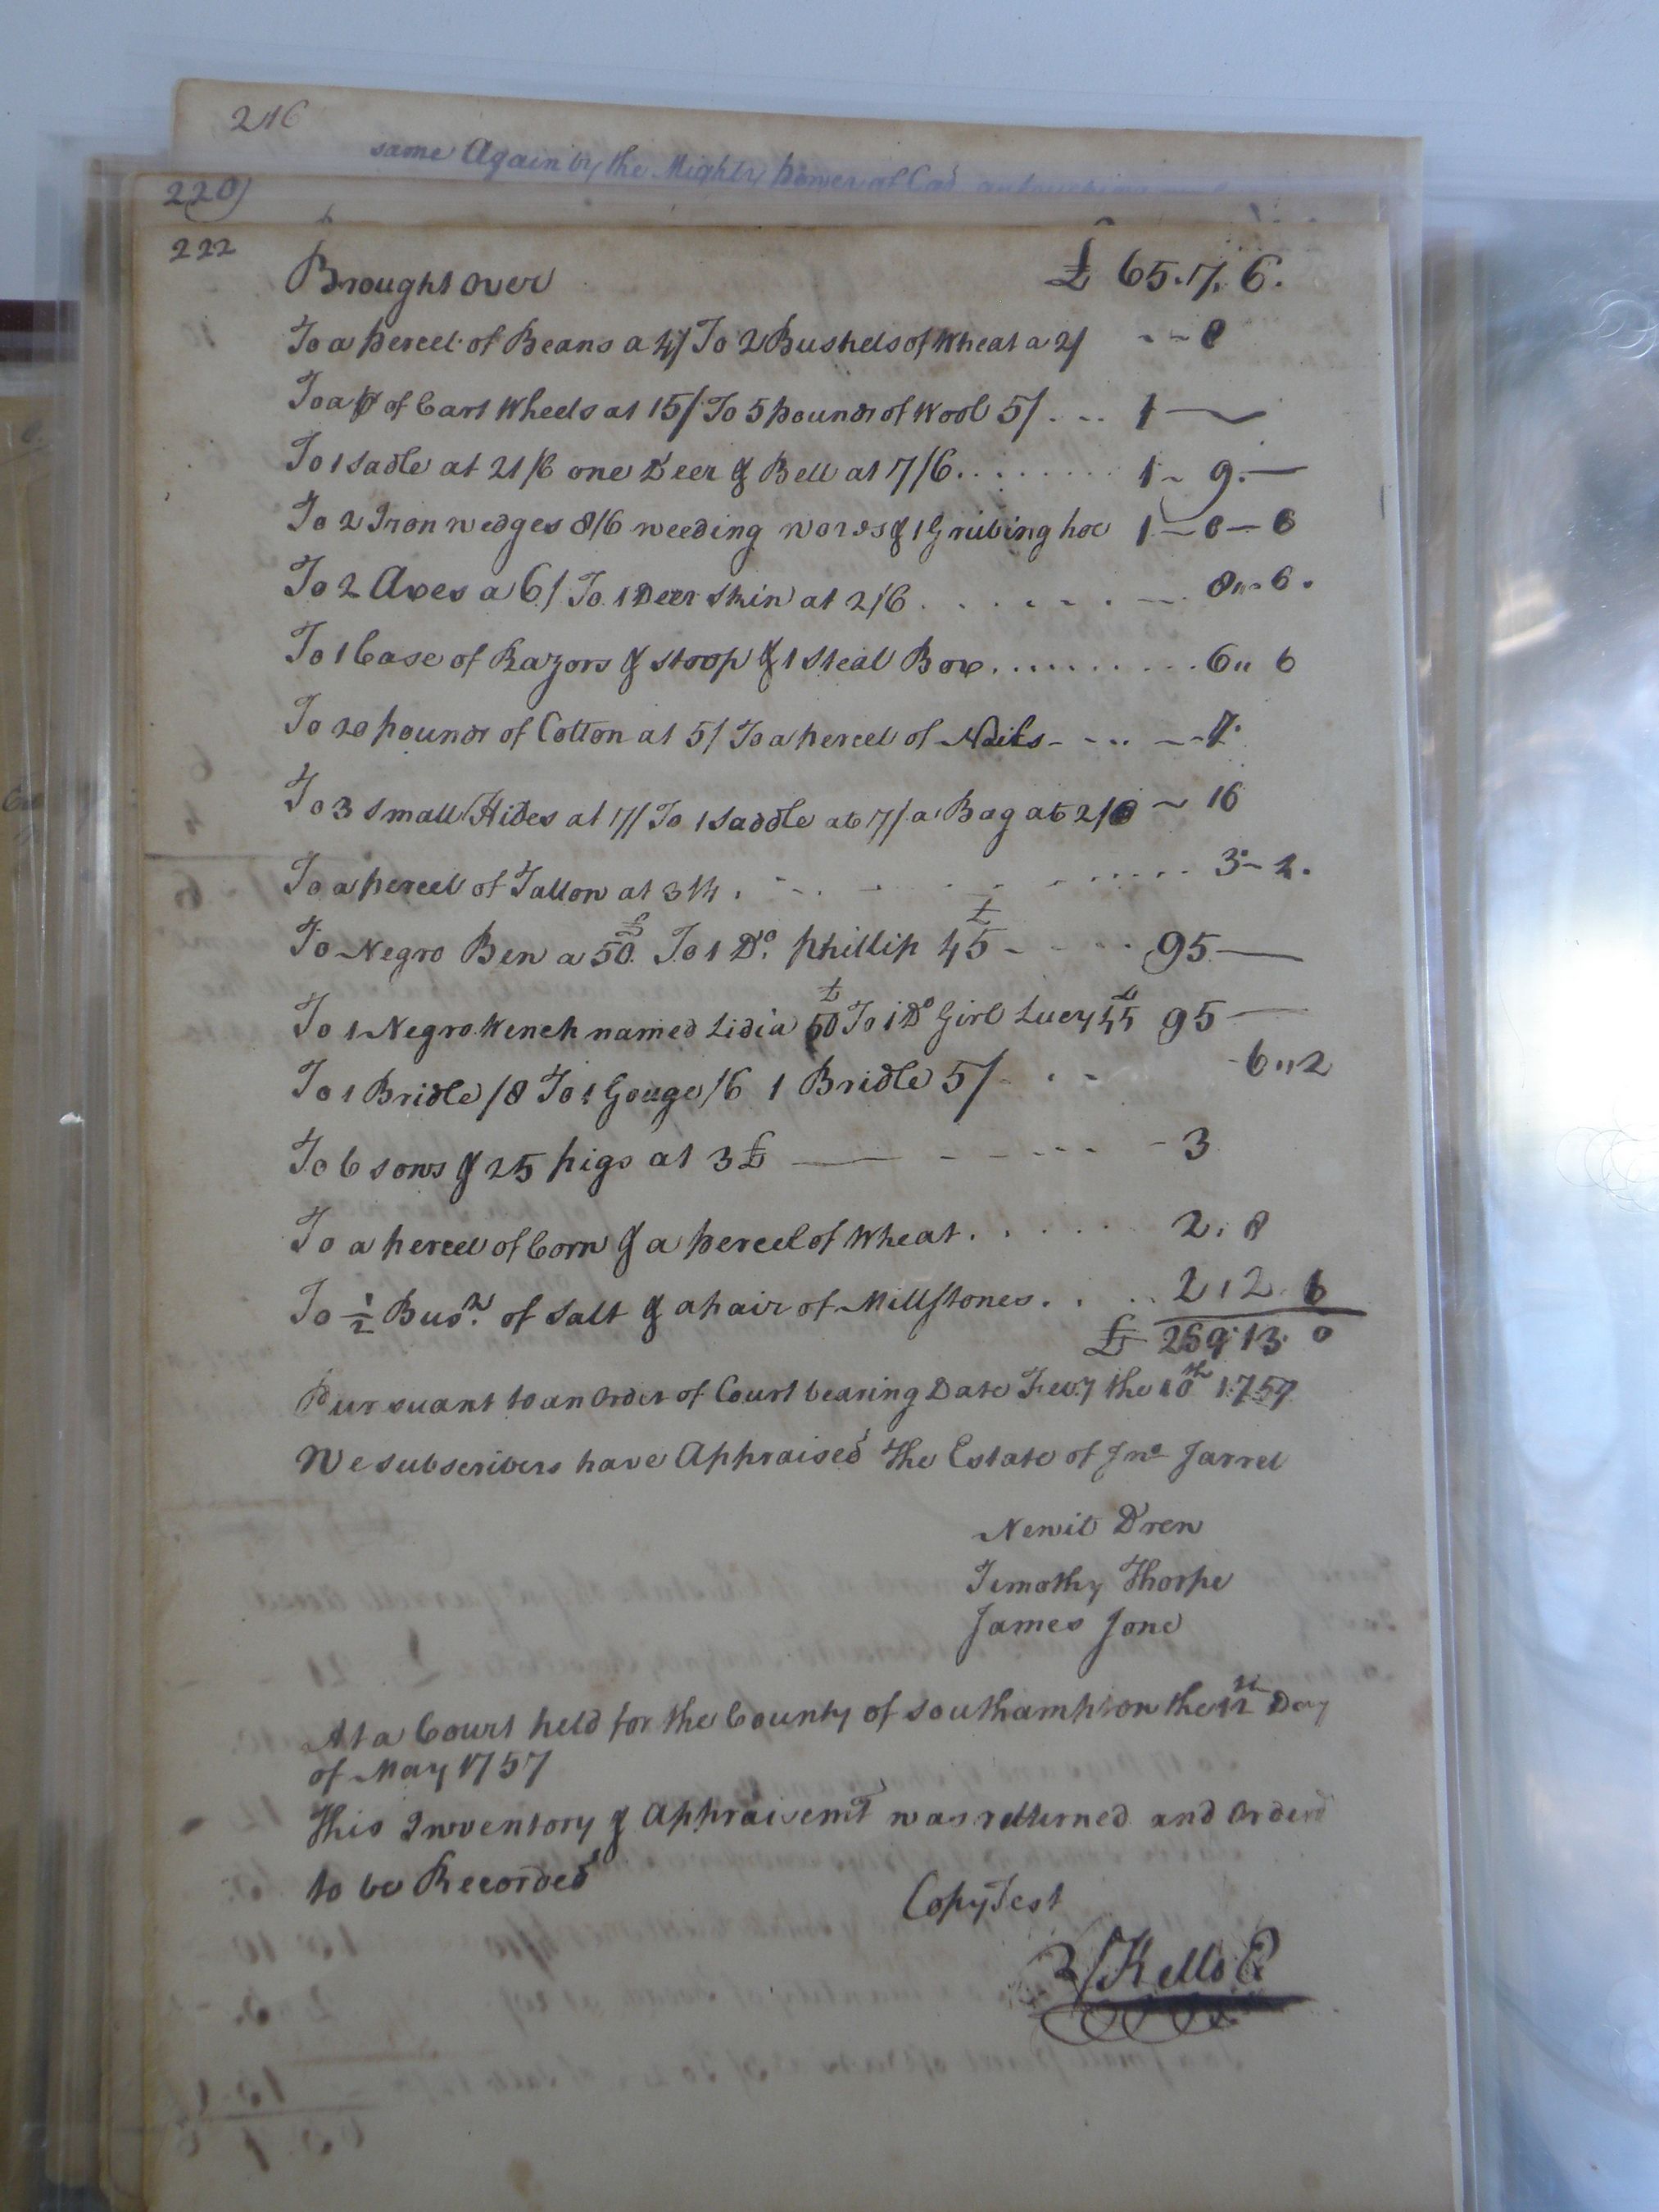 216
same Again by the Mighty power of God
220
222
Brought over £ 65.17.6.
To a percel of Beans a 4/ To 2 Bushels of Wheat a 2/ - - 8
To a pr of Cart Wheels at 15/ To 5 pounds of Wool 5/ . . . . 1 —
To 1 Sadle at 21/6 one Deer & Bell at 7/6 . . . . . . . . 1 ~ 9. —
To 2 Iron wedges 8/6 weeding & 1 Grubing hoe 1 — 0 — 6
To 2 Axes a 6/ To 1 Deer Skin at 2/6 . . . . . . . 8 " 6 .
To 1 Case of Razors & strop & 1 Steal Box . . . . . . . . . . 6 " 6
To 20 pounds of Cotton at 5/ To a percel of Nails - - .. — - 7
To 3 Small Hides at 7/ To 1 Saddle at 7/ a Bag at 2/ ~ 16
To a percel of Tallow at 3/4 . . . . . . . . . . . 3 - 2 .
To Negro Ben a 50£ To 1 Do. Phillip 45£ - - - - 95 —
To 1 Negro Wench named Lidia 50£ To 1 Do Girl Lucy 45£ 95 —
To 1 Bridle /8 To 1 Gouge /6 1 Bridle 5/ - . - - 6 " 2
To 6 sows & 25 pigs at 3£ — - - - - - - 3
To a percel of Corn & a percel of Wheat . . . . . 2 . 8
To ½ Bus.ll of Salt & a pair of Millstones . . . . 2 12 6
£ 269 13 0
Pursuant to an Order of Court bearing Date Feby the 10th 1757
We subscribers have Appraised the Estate of Jno Jarrel
Newit Drew
Timothy Thorpe
James Jone
At a Court held for the County of Southampton the 12th Day
of May 1757
This Inventory & Appraisemt was returned and Orderd
to be Recorded
Copy Test
R/Kello C